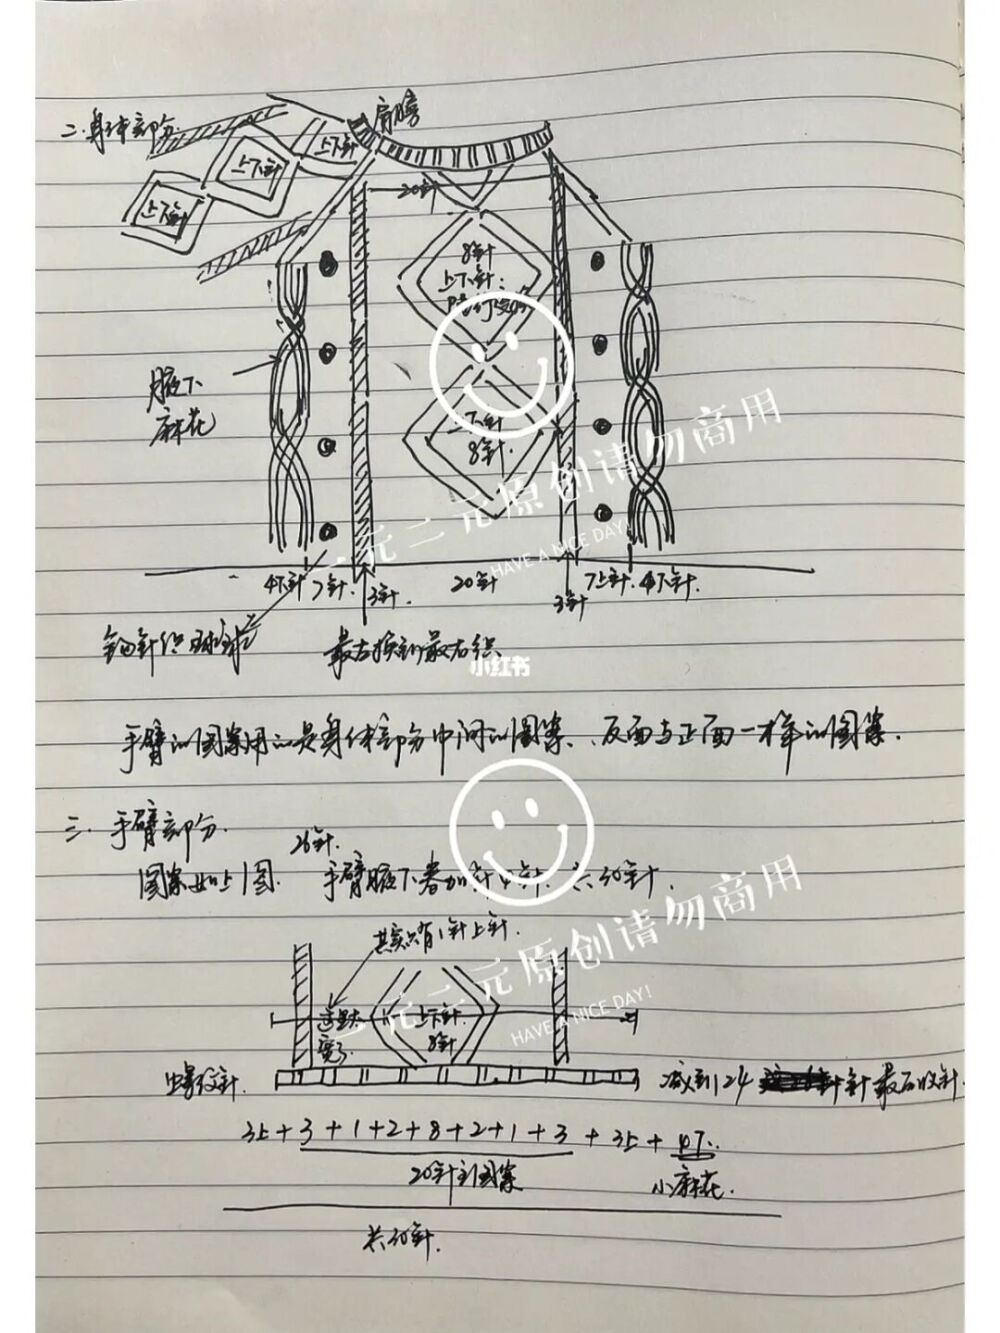 二.身体部分
肩膀
上下针
上下针
上下针
20针
8针
上下针
上下针
8针
腋下
麻花
4下针 7针 3针 20针 3针 7上针 4下针
钩针织球球
最右织
小红书
手臂的图案用的是身体部分中间的图案、反面与正面一样的图案.
三.手臂部分.
26针.
图案如上图. 手臂腋下 4针. 共30针.
其实只有1针上针.
这里太
宽了
上下针
8针
螺纹针
减到24 针最后收针.
3上+3+1+2+8+2+1+3+3上+4下.
20针主图案
小麻花.
共30针.
一元二元原创请勿商用
HAVE A NICE DAY!
一元二元原创请勿商用
HAVE A NICE DAY!